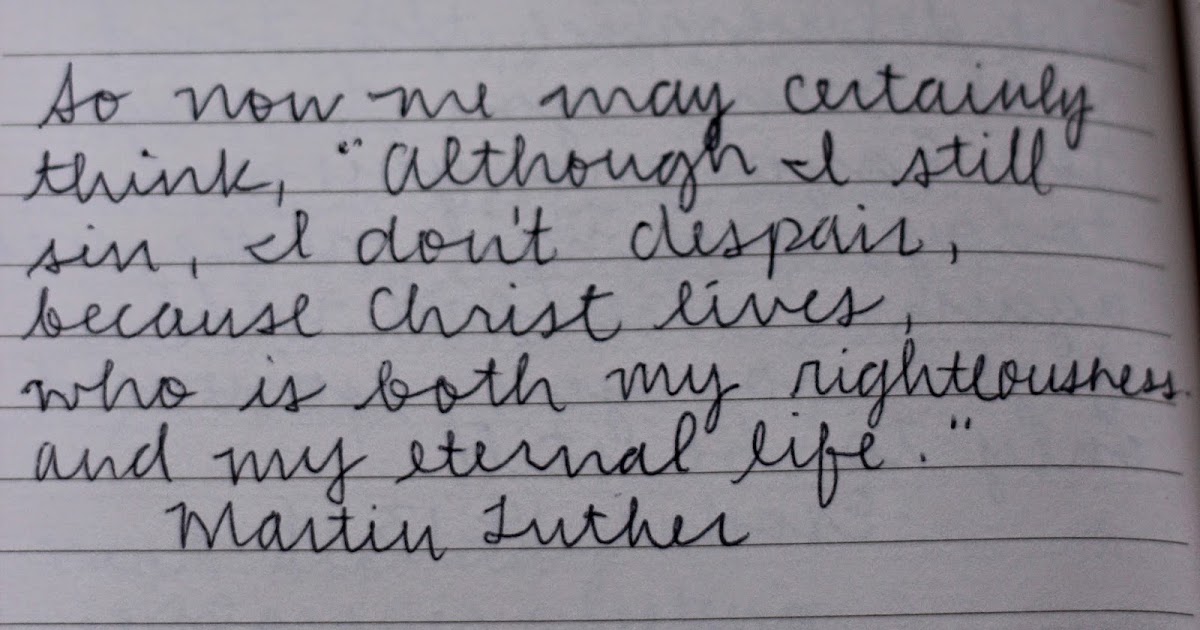 So now we may certainly
think, "Although I still
sin, I don't despair,
because Christ lives,
who is both my righteousness
and my eternal life."
Martin Luther